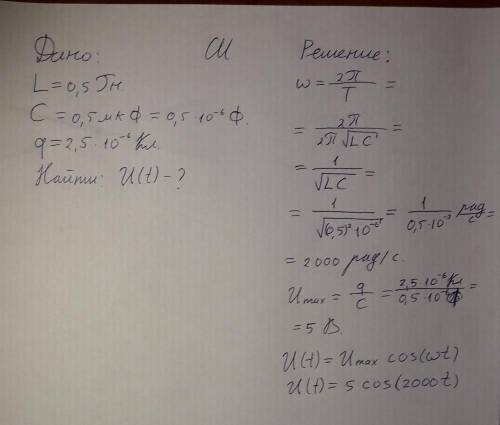 Дано: СИ Решение:
L = 0,5 Гн.
C = 0,5 мкФ = 0,5 · 10⁻⁶ Ф.
q = 2,5 · 10⁻⁶ Кл.
Найти: U(t) - ?
ω = 2π/T =
= 2π/(2π√LC) =
= 1/√LC =
= 1/√((0,5)² · 10⁻⁶) = 1/(0,5 · 10⁻³) рад/с =
= 2000 рад/с.
Umax = q/C = (2,5 · 10⁻⁶ Кл)/(0,5 · 10⁻⁶ Ф) =
= 5 В.
U(t) = Umax cos(ωt)
U(t) = 5 cos(2000t)